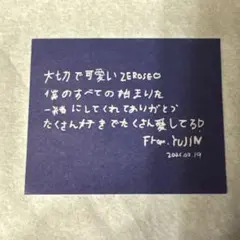 大切で可愛いZEROSE♡
僕のすべての始まりを
一緒にしてくれてありがとう
たくさん好きでたくさん愛してる!
From. YUJIN